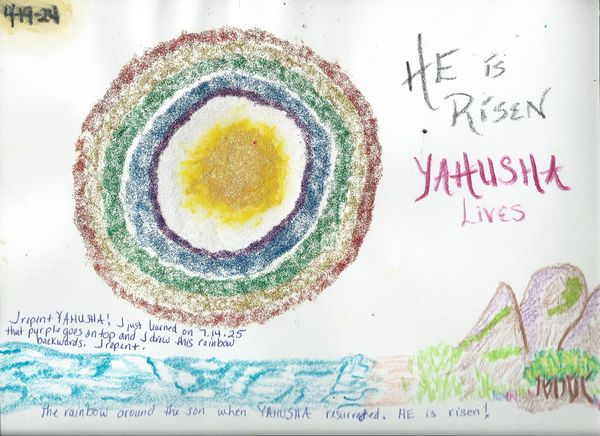 4-19-24
HE is
RiSEN
YAHUSHA
LiVES
I repent YAHUSHA! I just learned on 7.14.25
that purple goes on top and I drew this rainbow
backwards. I repent.
the rainbow around the son when YAHUSHA resurrected. HE is risen!